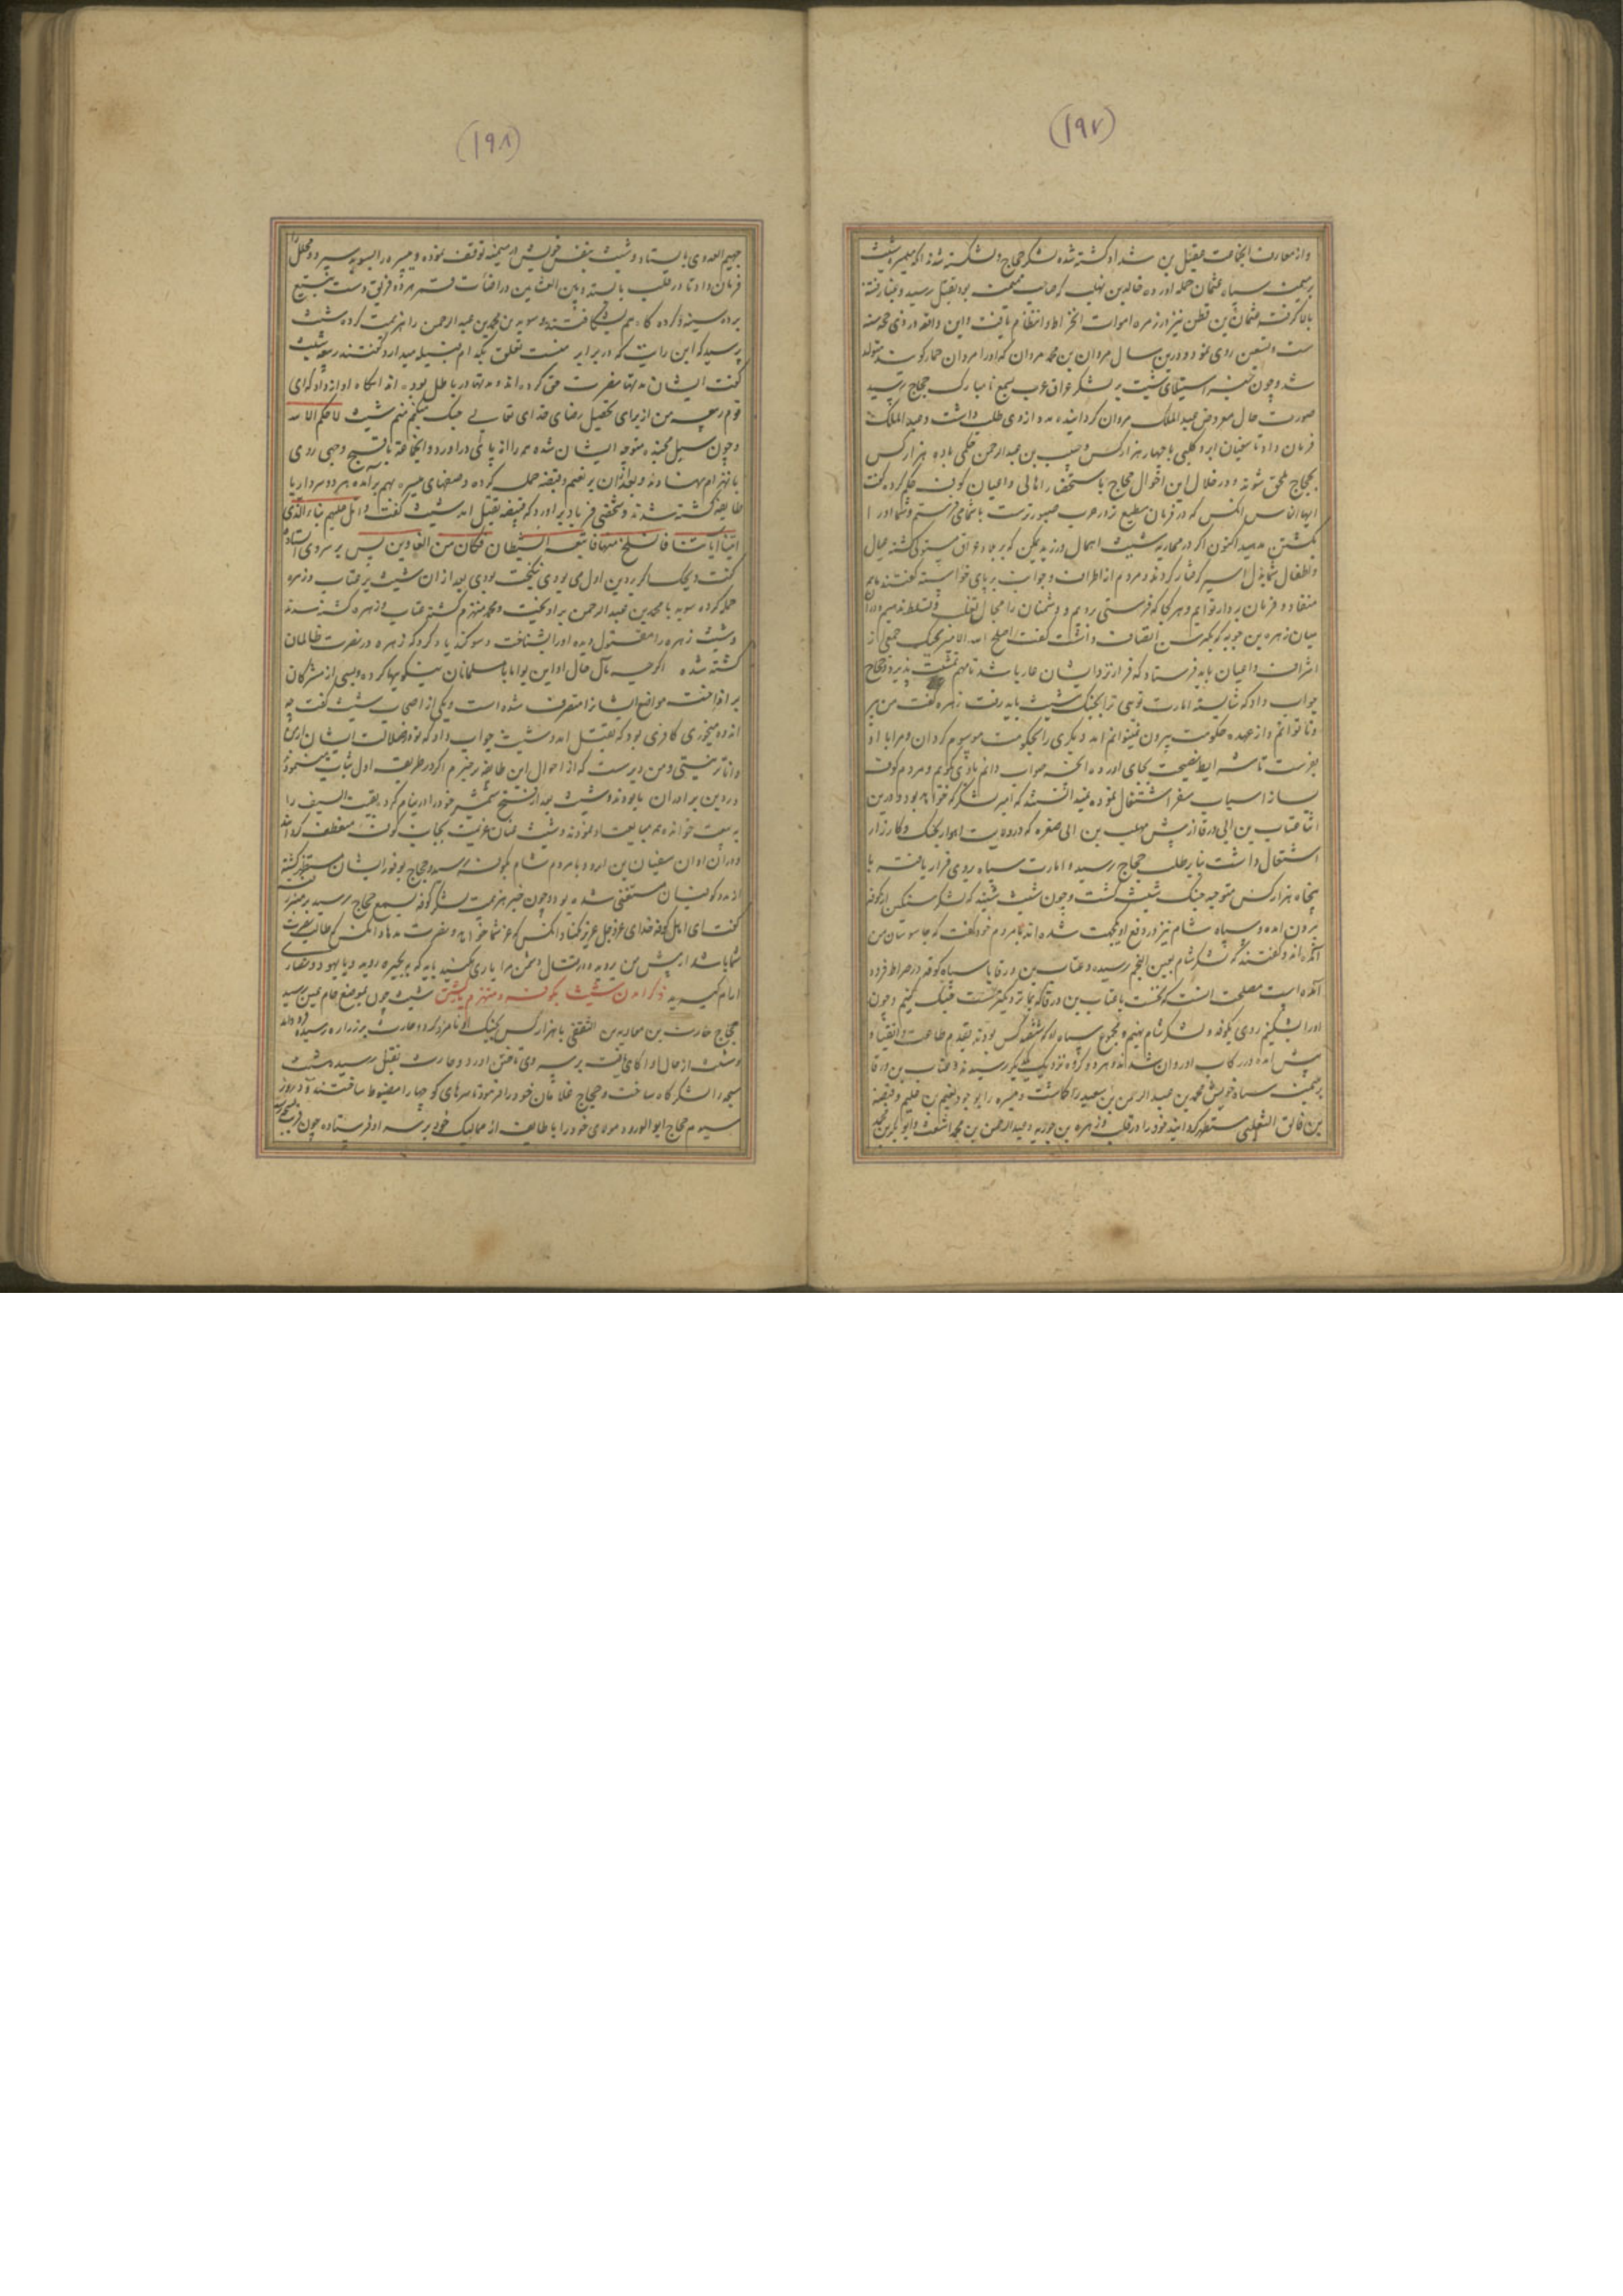 (۱۹۷)
و از معارف انجماعت عقیل بن شداد کشته شده لشکر حجاج و شکسته شد
بر میمنت سپاه عثمان حمله اورده خالد بن نهیک که صاحب میمنت بود بقتل رسید و
بالا گرفته عثمان بن قطن نیز در زمره اموات انخراط و انتظام یافت و این واقعه در ذی حجه سنه
ست و سبعین روی نمود و درین سال مروان بن محمد مروان که او را مروان حمار گویند متولد
شد و چون خبر استیلای شبیب بر لشکر عراق عرب بسمع نامبارک حجاج رسید
صورت حال معروض عبد الملک مروان گردانیده مدد از وی طلب داشت و عبد الملک
فرمان داد تا سفیان ابرد کلبی با چهار هزار کس و حبیب بن عبد الرحمن حکمی با دو هزار کس
بحجاج ملحق شوند و در خلال این احوال حجاج باستحضار اهالی و اعیان کوفه حکم کرده گفت
ایها الناس انکس که در فرمان مطیع تر و در حرب صبورترست
بکشتن میدهید اکنون اگر در محاربه شبیب اهمال ورزید یمکن که بر بلاد عراق مستولی گشته عیال
و اطفال شما بذل اسیر گرفتار گردند و مردم از اطراف و جوانب بر پای خواسته گفتند ما همه
منقاد و فرمان بردار توایم و هر کجا که فرستی رویم و دشمنان را مجال تغلب و تسلط ندهیم و دران
میان زهره بن حویه که بکبر سن اتصاف داشت گفت اصلح الله الامیر بجنک جمعی از
اشراف و اعیان باید فرستاد که فرار نزد ایشان عار باشد تا مهم تمشیت پذیرد و حجاج
جواب داد که شایسته امارت تویی ترا بجنک شبیب باید رفت زهره گفت من پیر
و ناتوانم و از عهده حکومت بیرون نمیتوانم امد دیگری را بحکومت موسوم گردان و مرا با او
بفرست تا شرایط نصیحت بجای اورده انچه صواب دانم با وی گویم و مردم کوفه
بساز اسباب سفر اشتغال نموده نمیدانستند که امیر لشکر که خواهد بود و درین
اثنا عتاب بن ابی ورقا از پیش مهلب بن ابی صفره که در ولایت اهواز بجنک و کارزار
اشتغال داشت بنا بر طلب حجاج رسید و امارت سپاه بر وی قرار یافته با
پنجاه هزار کس متوجه جنک شبیب گشت و چون شبیب شنید که لشکر سنگین از کوفه
بیرون امده و سپاه شام نیز در دفع او یکجهت شده اند با مردم خود گفت که جاسوسان من
آمده اند و گفتند که لشکر شام بعین التمر رسیده و عتاب بن ورقا با سپاه کوفه در صراط فرود
آمده است مصلحت انست که نخست با عتاب بن ورقا که بما نزدیکترست جنک کنیم و چون
او را بشکنیم روی بکوفه و لشکر شام نهیم و مجموع سپاه او که ششصد کس بودند بقدم طاعت و انقیاد
پیش امده در رکاب او روان شدند و هر دو گروه نزدیک بیکدیگر رسیدند و عتاب بن ورقا
بر میمنت سپاه خویش محمد بن عبد الرحمن بن سعید را گماشت و میسره را بوجود نعیم بن علیم و قبیصه
بن والق التغلبی مستظهر گردانید خود را در قلب و زهره بن حویه و عبد الرحمن بن محمد اشعث و ابو بکر بن محمد
(۱۹۸)
جهیم العدوی باستاد و شبیب بنفس خویش در میمنه توقف نموده و میسره را بسوید سپرد و محلل را
فرمان داد تا در قلب بایستد و بین العشائین دران شب قمر هر دو فریق دست بتیغ
برده سینه و کرده گاه هم بشکافتند و سوید بن محمد بن عبد الرحمن را هزیمت کرده شبیب
پرسید که این رایت که در برابر منست تعلق بکدام قبیله میدارد گفتند ربیعه شبیب
گفت ایشان مدتها بنصرت حق کرده اند و مدتها در باطل بوده اند انکاه اواز داد که ای
قوم ربیعه من از برای تحصیل رضای خدای تعالی جنک میکنم منم شبیب لا حکم الا لله
و چون سیل محنت متوجه ایشان شده همه را از پای در اورد و انجماعت باقبح وجهی روی
بانهزام نهادند و بعد ازان بر نعیم و قبیصه حمله کرده و صفهای میسره بهم برآمده هر دو سردار با
طایفه کشته شدند و شخصی فریاد بر اورد که قبیصه بقتل امد شبیب گفت و اتل علیهم نباء الذی
اتینا ایاتنا فانسلخ منها فاتبعه الشیطان فکان من الغاوین پس بر سر وی استاده
گفت ویحک اگر بر دین اول می بودی نیکبخت بودی بعد از ان شبیب بر عتاب و زهره
حمله کرده سوید با محمد بن عبد الرحمن بر اویخت و محمد منهزم گشته عتاب و زهره کشته شدند
و شبیب زهره را مقتول دیده او را بشناخت و سوگند یاد کرد که زهره در نصرت ظالمان
کشته شده اگرچه مآل حال او این بود اما با مسلمانان نیکویها کرده و بسی از مشرکان
بر انداخت مواضع ایشانرا متصرف شده است و یکی از اصحاب شبیب گفت چه
اندوه میخوری کافری بود که بقتل امد و شبیب جواب داد که تو در ضلالت ایشان از من
داناتر نیستی و من دیرست که از احوال این طایفه باخبرم اگر در طریقه اول ثبات مینمودند
در دین برادران ما بودند و شبیب بعد از فتح شمشیر خود را در نیام کرد و بقیت السیف را
به بیعت خوانده همه مبایعت نمودند و شبیب عنان عزیمت بجانب کوفه منعطف گردانید
و دران اوان سفیان بن ابرد با مردم شام بکوفه رسید و حجاج بوفور ایشان مستظهر گشته
از مدد کوفیان مستغنی شده بود و چون خبر هزیمت لشکر کوفه بسمع حجاج رسید بر منبر رفته
گفت ای اهل کوفه خدای عز و جل عزیز نکناد انکس که عز شما خواهد و نصرت مدهاد انکس که طالب نصرت
شما باشد از پیش من بروید و در قتال دشمن مرا یاری مکنید باید که بحیره روید و با یهود و نصاری
ارام گیرید ذکر امدن شبیب بکوفه و منهزم گشتن شبیب چون بموضع حمام عین رسید
حجاج حارث بن معاویه بن الثقفی با هزار کس بجنک او نامزد کرد و حارث بر زراره رسیده
و شبیب از حال او اگاهی یافت بر سر وی تاختن اورد و حارث بقتل رسید شبیب
سبخه را لشکرگاه ساخت و حجاج غلامان خود را فرمود تا سرهای کوچها را مضبوط ساختند و روز
سیوم حجاج ابو الورد مولای خود را با طایفه از ممالیک خود بر سر او فرستاده چون